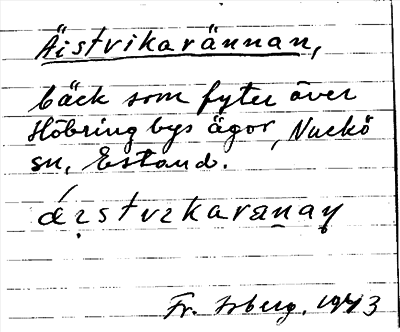 Äistvikarännan,
bäck som fyter över
Höbring bys ägor, Nuckö
sn, Estland.
Fr. Isberg, 1943